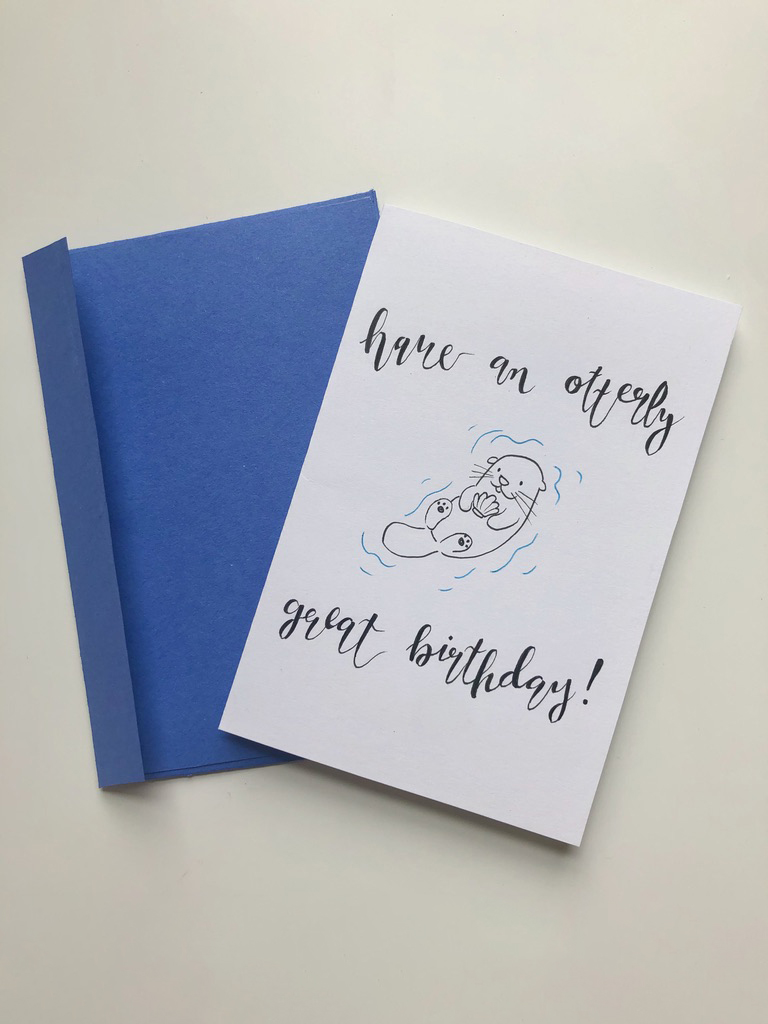 have an otterly
great birthday!